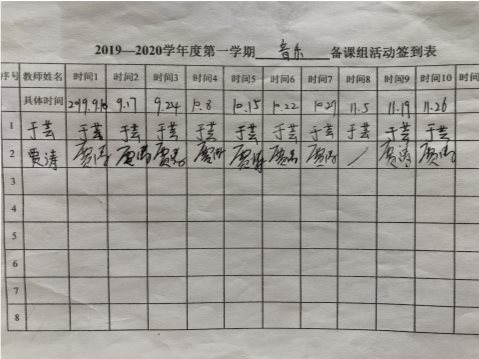 2019—2020学年度第一学期 音乐 备课组活动签到表
序号 教师姓名 时间1 时间2 时间3 时间4 时间5 时间6 时间7 时间8 时间9 时间10 时间
具体时间 2019.9.10 9.17 9.24 10.8 10.15 10.22 10.29 11.5 11.19 11.26
1 于芸 于芸 于芸 于芸 于芸 于芸 于芸 于芸 于芸 于芸 于芸
2 贾涛 贾涛 贾涛 贾涛 贾涛 贾涛 贾涛 贾涛 / 贾涛 贾涛
3
4
5
6
7
8